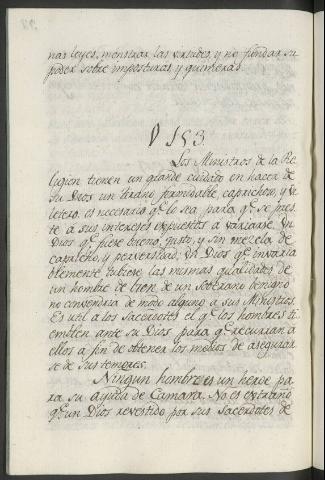 nas leyes, menstrar las virtudes, y no fundar su
poder sobre imposturas, y quimeras.
§ 153.
Los Ministros de la Re-
ligion tienen un grande cuidado en hacer de
su Dios un tirano formidable, caprichoso, y Ve
letero. es necesario qe. lo sea para qe. se pres
te á sus intereses expuestos á variarse. Un
Dios qe. fuese bueno, justo, y sin mezcla de
capricho, y perversidad, Un Dios qe. invaria
blemente tubiese las mismas qualidades de
un hombre de bien, de un soberano benigno
no convendria de modo alguno á sus Ministros.
Es util á los Sacerdotes el qe. los hombres ti-
emblen ante su Dios para qe. recurran á
ellos á fin de obtener los medios de asegurar
se de sus temores.
Ningun hombre es un heroe pa
ra su ayuda de Camara. No es extraño
qe. un Dios revestido por sus Sacerdotes de